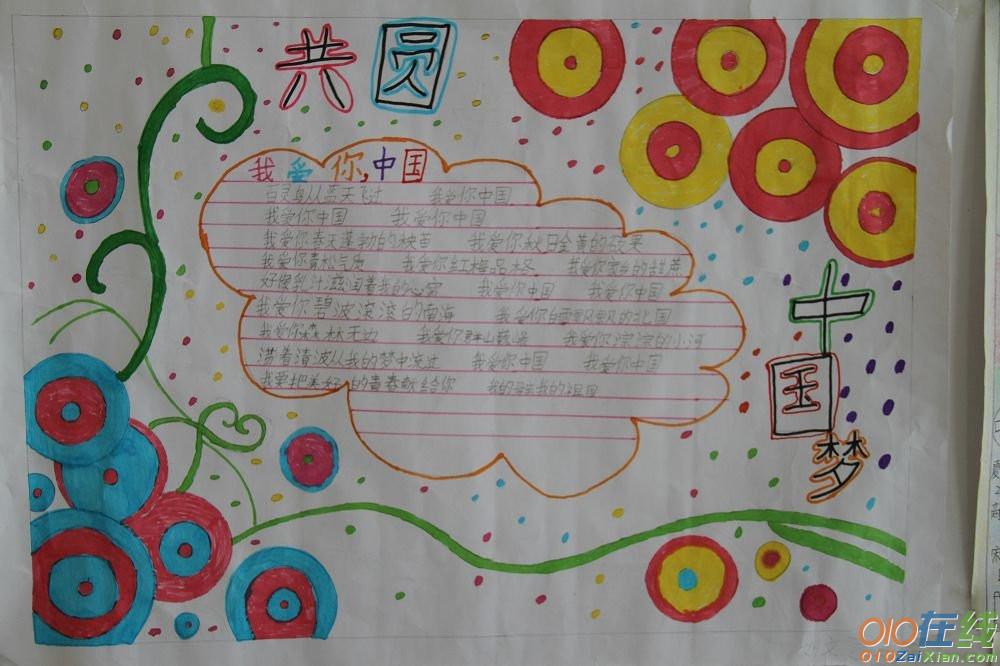 共圆
中国梦
我爱你,中国
百灵鸟从蓝天飞过 我爱你中国
我爱你中国 我爱你中国
我爱你春天蓬勃的秧苗 我爱你秋日金黄的硕果
我爱你青松气质 我爱你红梅品格 我爱你家乡的甜蔗
好像乳汁滋润着我的心窝 我爱你中国 我爱你中国
我爱你碧波滚滚的南海 我爱你白雪飘飘的北国
我爱你森林无边 我爱你群山巍峨 我爱你淙淙的小河
荡着清波从我的梦中流过 我爱你中国 我爱你中国
我要把美好的青春献给你 我的母亲我的祖国
010在线
010ZaiXian.com